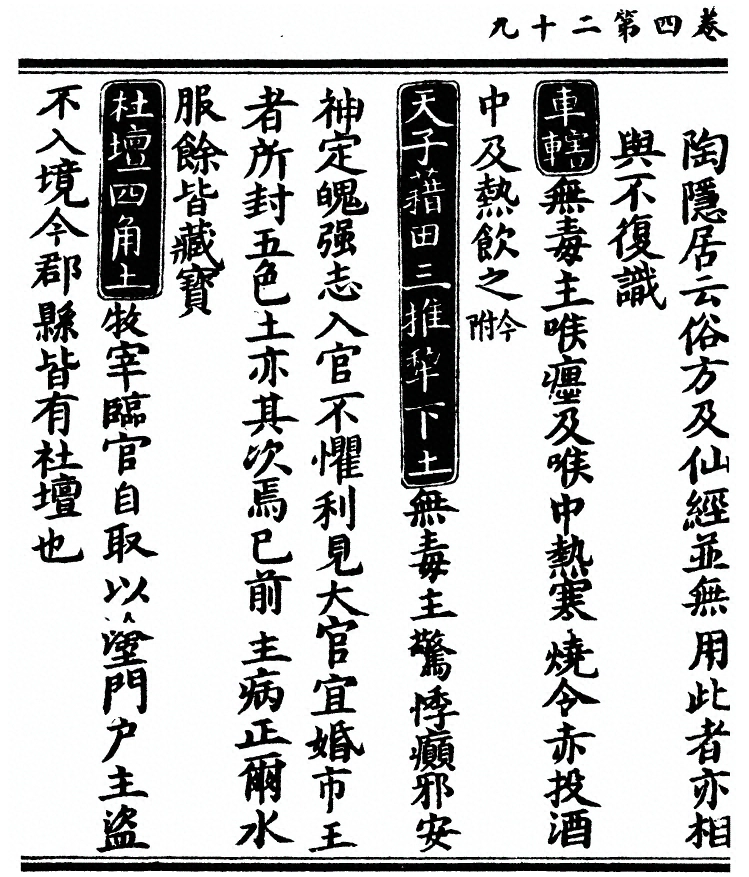 卷四第二十九
陶隱居云俗方及仙經並無用此者亦相
與不復識
車轄無毒主喉痹及喉中熱寒燒令赤投酒
中及熱飲之今附
天子藉田三推犂下土無毒主驚悸癲邪安
神定魄强志入官不懼利見大官宜婚市王
者所封五色土亦其次焉已前主病正爾水
服餘皆藏寶
社壇四角土牧宰臨官自取以塗門户主盜
不入境今郡縣皆有社壇也